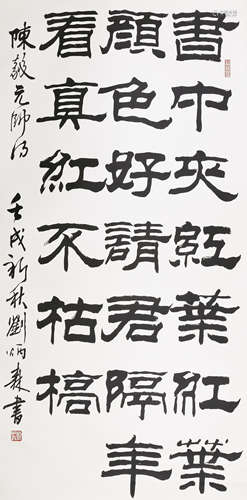 書中夾紅葉紅葉
顏色好請君隔年
看真紅不枯槁
陳毅元帥詩 壬戌新秋劉炳森書